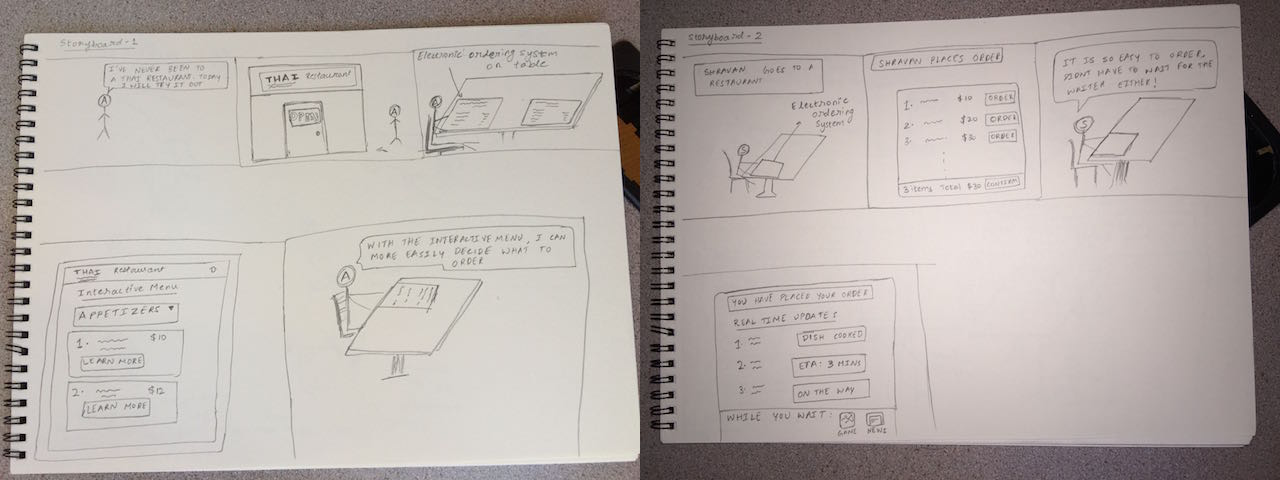 Storyboard - 1
I'VE NEVER BEEN TO
A THAI RESTAURANT. TODAY
I WILL TRY IT OUT
A
THAI Restaurant
OPEN
A
Electronic ordering system
on table
A
THAI Restaurant
Interactive Menu
APPETIZERS
1. $10
LEARN MORE
2. $12
LEARN MORE
WITH THE INTERACTIVE MENU, I CAN
MORE EASILY DECIDE WHAT TO
ORDER
A
Storyboard - 2
SHRAVAN GOES TO A
RESTAURANT
Electronic
ordering
system
S
SHRAVAN PLACES ORDER
1. $10 ORDER
2. $20 ORDER
3. $30 ORDER
3 items Total $30 CONFIRM
IT IS SO EASY TO ORDER.
DIDNT HAVE TO WAIT FOR THE
WAITER EITHER!
S
YOU HAVE PLACED YOUR ORDER
REAL TIME UPDATES
1. DISH COOKED
2. ETA: 3 MINS
3. ON THE WAY
WHILE YOU WAIT:
GAME NEWS